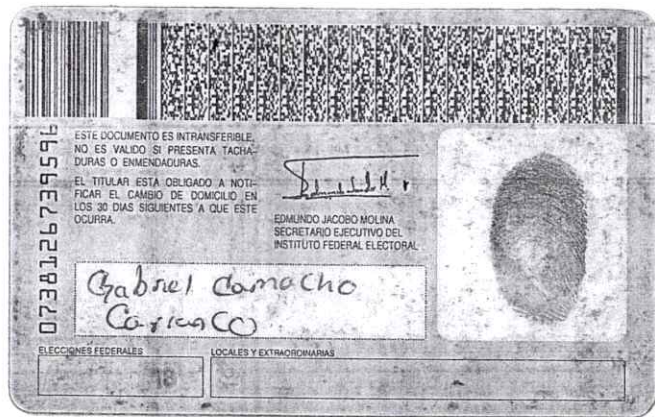 ESTE DOCUMENTO ES INTRANSFERIBLE,
NO ES VALIDO SI PRESENTA TACHA-
DURAS O ENMENDADURAS.
EL TITULAR ESTA OBLIGADO A NOTI-
FICAR EL CAMBIO DE DOMICILIO EN
LOS 30 DIAS SIGUIENTES A QUE ESTE
OCURRA.
EDMUNDO JACOBO MOLINA
SECRETARIO EJECUTIVO DEL
INSTITUTO FEDERAL ELECTORAL
0738126739596
Gabriel Camacho
Carrasco
ELECCIONES FEDERALES
LOCALES Y EXTRAORDINARIAS